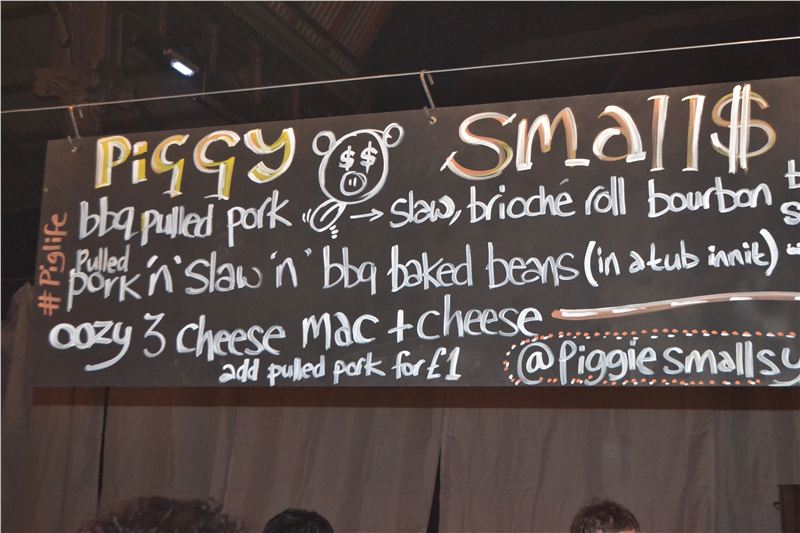 PiGGY Small$
#Piglife
bbq pulled pork → slaw, brioché roll bourbon
Pulled
pork 'n' slaw 'n' bbq baked beans (in a tub innit)
oozy 3 cheese mac + cheese
add pulled pork for £1
@Piggiesmallsy